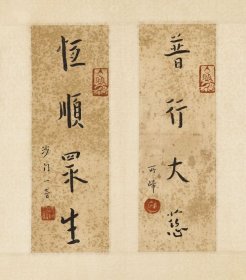 普行大慈
恆順眾生
沙門一音